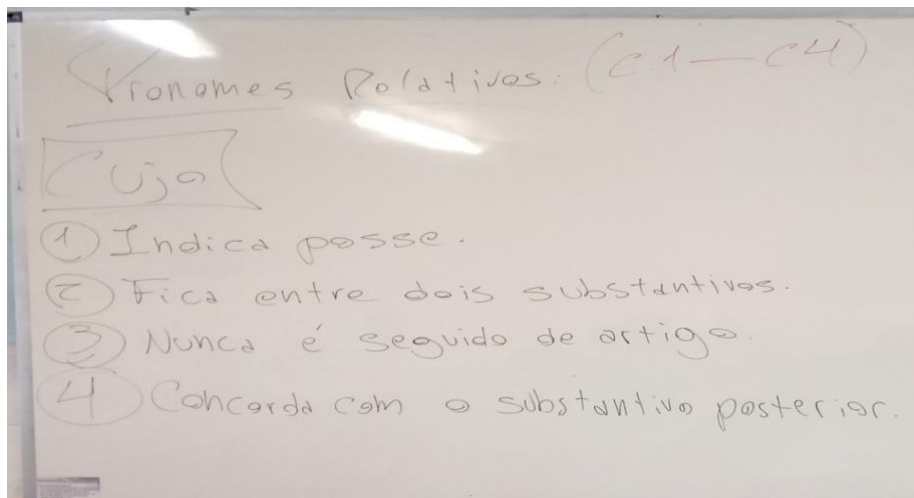 Pronomes Relativos: (C1 — C4)
Cujo
1 Indica posse.
2 Fica entre dois substantivos.
3 Nunca é seguido de artigo.
4 Concorda com o substantivo posterior.